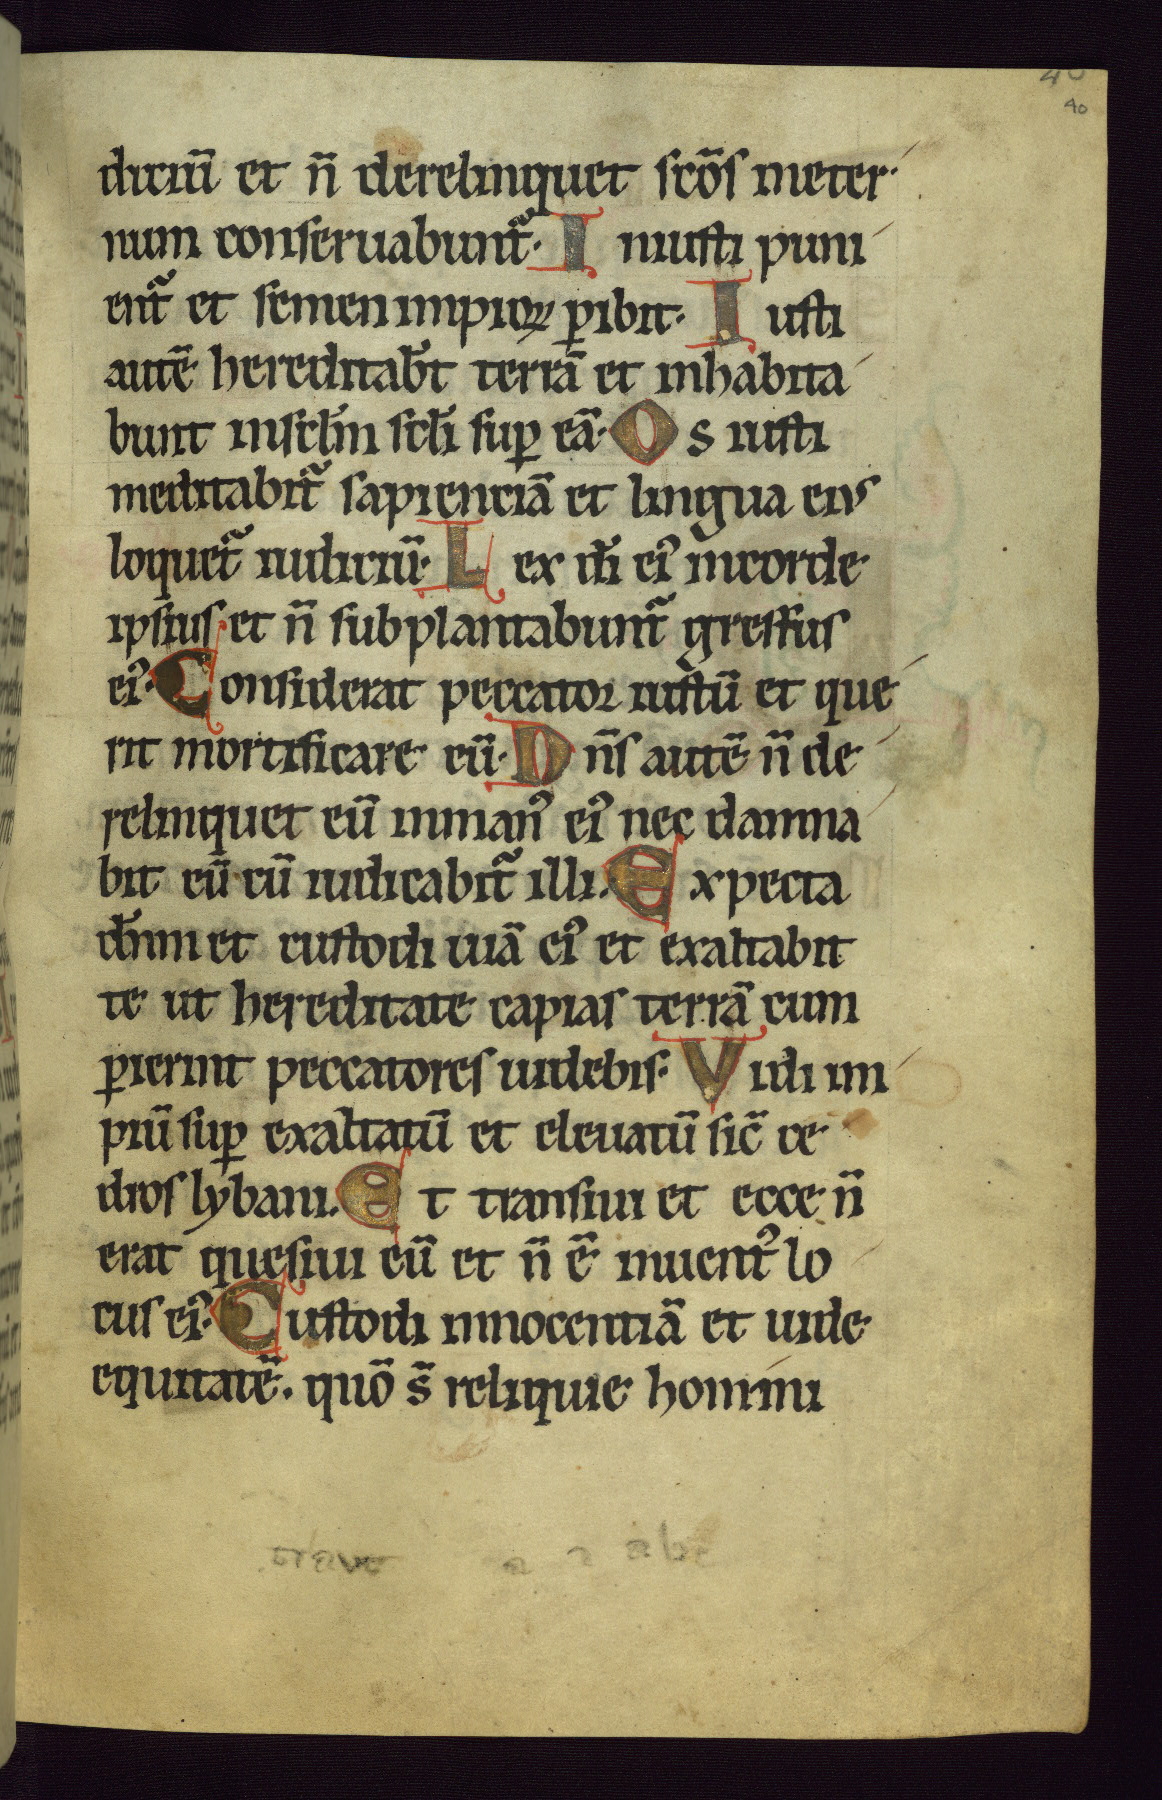 40
40
diciū et n̄ derelinquet sc̄os meter
num conseruabunt᷑. I niusti puni
ent᷑ et semen impioꝝ ꝑibit. I usti
autē hereditab̄t terrā et inhabita
bunt insc̄lm sc̄li suꝑ eā. O s iusti
meditabit᷑ sapienciā et lingua eius
loquet᷑ iudiciū. L ex dī eiꝰ incorde
ipsius et n̄ subplantabunt᷑ gressus
eiꝰ. Considerat peccator iustū et que
rit mortificare eū. D n̄s autē n̄ de
relinquet eū inmanꝰ eiꝰ nec damna
bit eū cū iudicabit᷑ illi. E xpecta
dn̄m et custodi uiā eiꝰ et exaltabit
te ut hereditate capias terrā cum
ꝑierint peccatores uidebis. V idi im
piū suꝑ exaltatū et eleuatū sic̄ ce
dros lybani. E t transiui et ecce n̄
erat quesiui eū et n̄ ē inuentꝰ lo
cus eiꝰ. Custodi innocentiā et uide
equitatē. quō s̄ reliquie homini